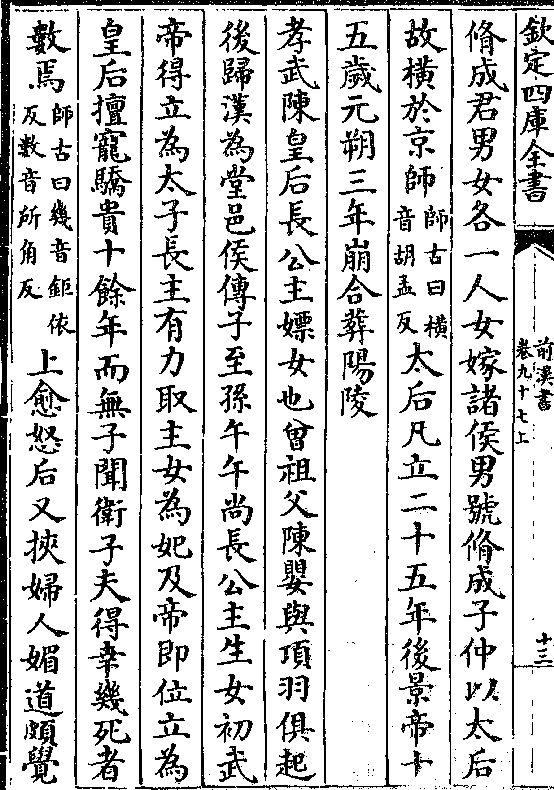 欽定四庫全書
前漢書
卷九十七上
十三
脩成君男女各一人女嫁諸侯男號脩成子仲以太后
故橫於京師師古曰橫音胡孟反太后凡立二十五年後景帝十
五歲元朔三年崩合葬陽陵
孝武陳皇后長公主嫖女也曾祖父陳嬰與項羽俱起
後歸漢為堂邑侯傳子至孫午午尚長公主生女初武
帝得立為太子長主有力取主女為妃及帝即位立為
皇后擅寵驕貴十餘年而無子聞衛子夫得幸幾死者
數焉師古曰幾音鉅依反數音所角反上愈怒后又挾婦人媚道頗覺